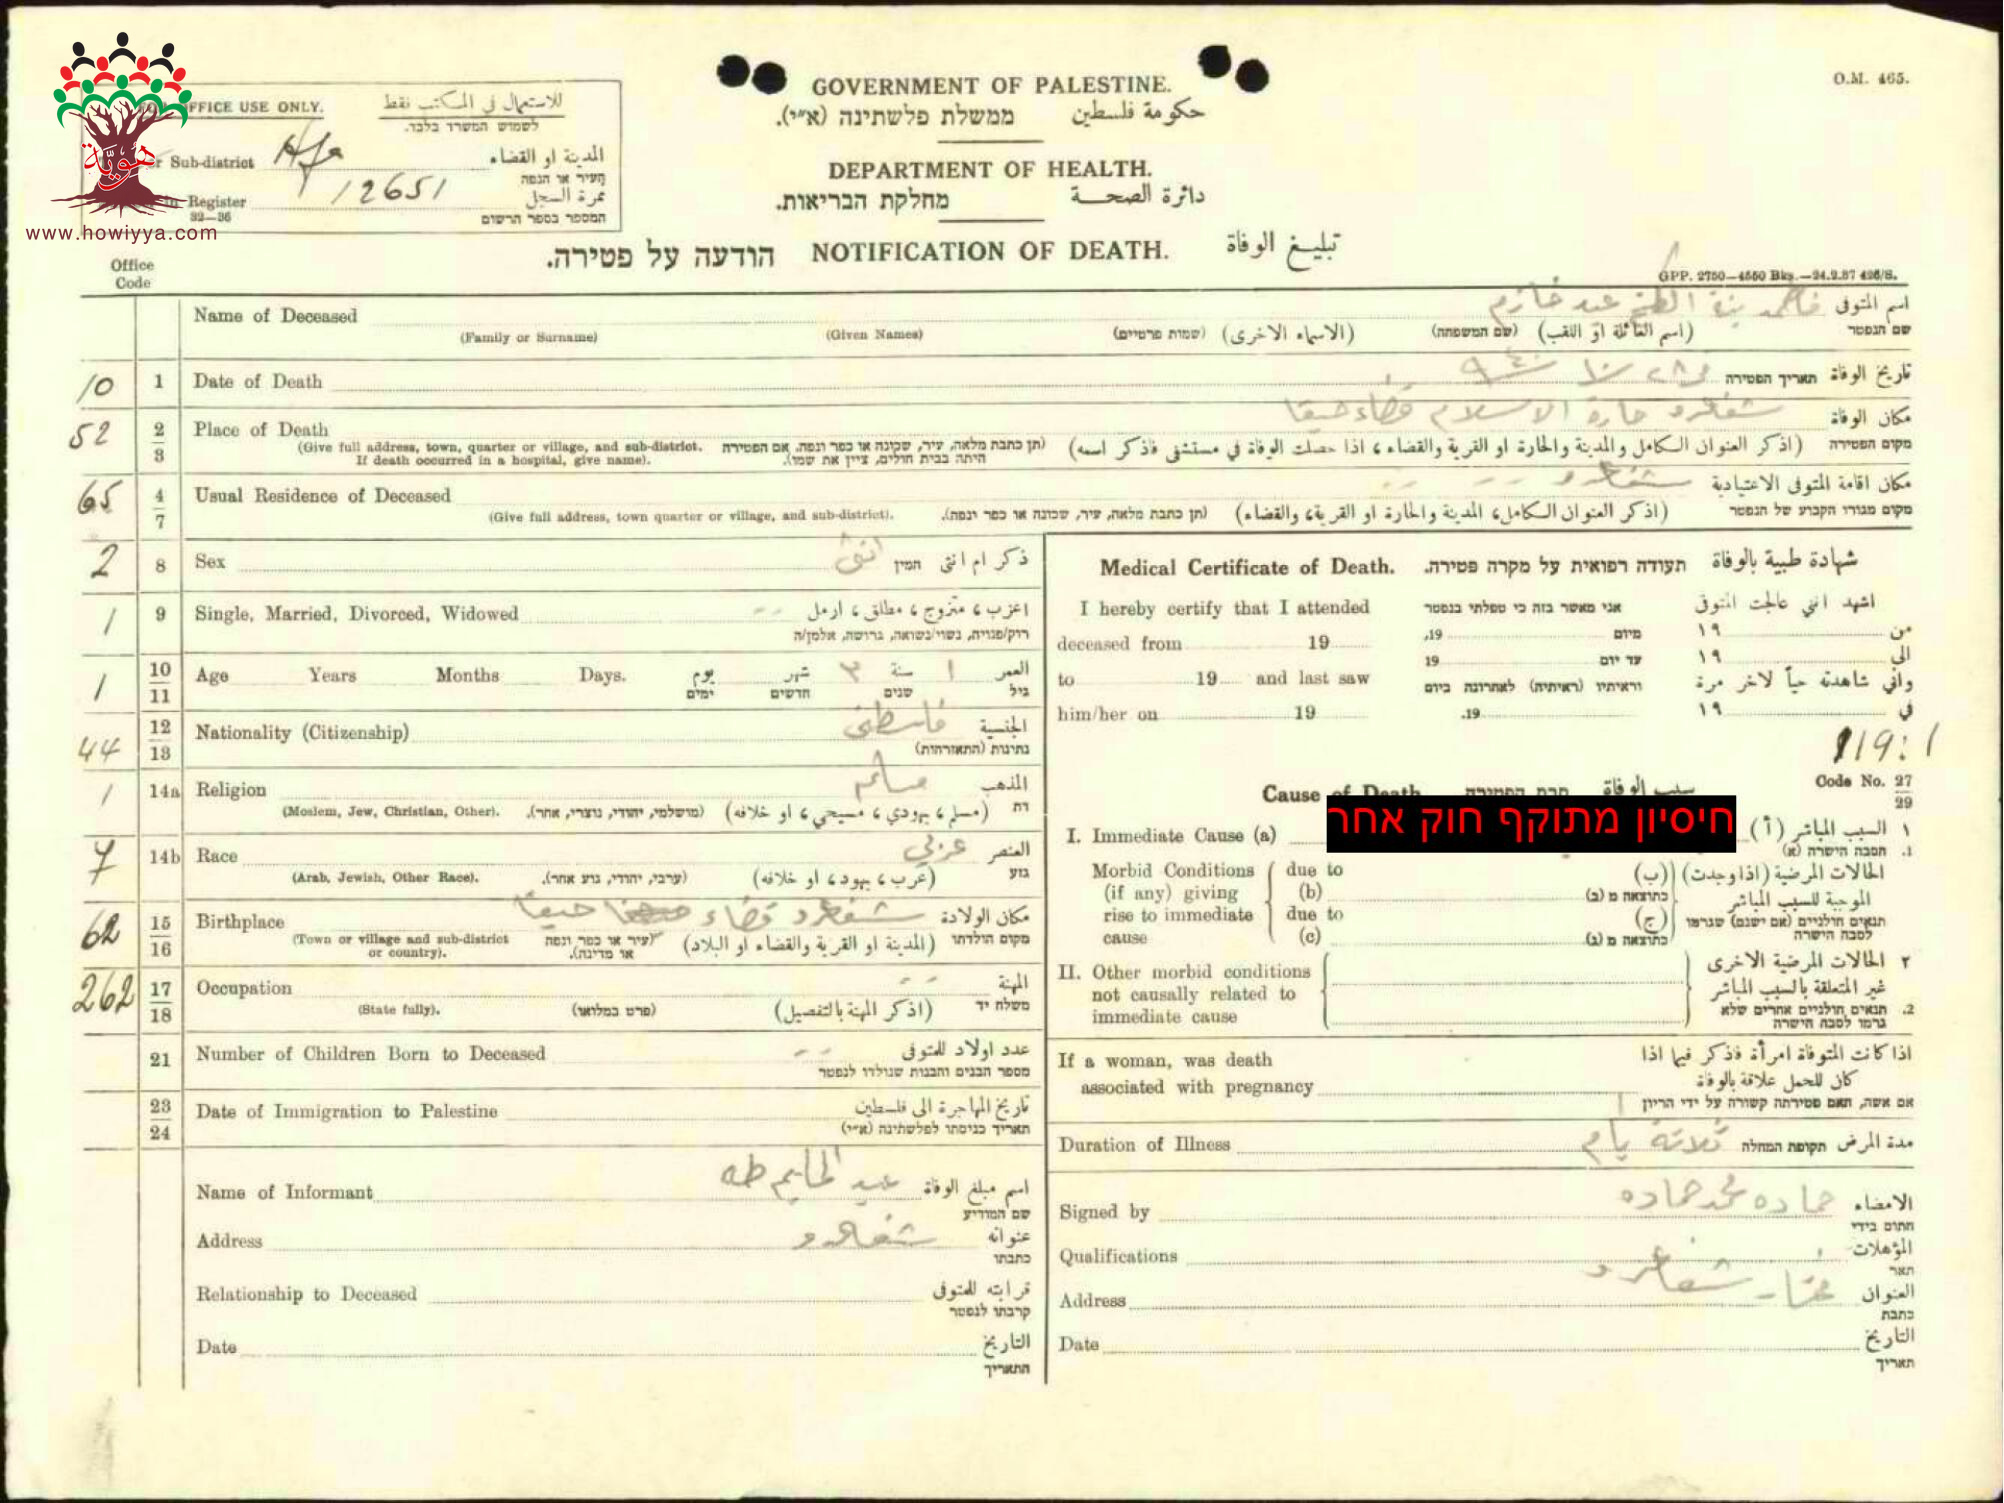 O.M. 465.
FOR OFFICE USE ONLY. للاستعمال في المكتب فقط
לשמוש המשרד בלבד.
Sub-district المدينة او القضاء
העיר או הנפה
Register 12651 نمرة السجل
32—36 המספר בספר הרשום
هُويَّة
www.howiyya.com
GOVERNMENT OF PALESTINE.
ממשלת פלשתינה (א״י). حكومة فلسطين
DEPARTMENT OF HEALTH.
מחלקת הבריאות. دائرة الصحة
הודעה על פטירה. NOTIFICATION OF DEATH. تبليغ الوفاة
GPP. 2750—4550 Bks.—24.2.37 426/S.
Office
Code
Name of Deceased فاطمه بنت عبد اسم المتوفى
(Family or Surname) (Given Names) (שמות פרטיים) (الاسماء الاخرى) (שם המשפחה) (اسم العائلة او اللقب) שם הנפטר
10 1 Date of Death תאריך הפטירה تاريخ الوفاة
52 2 3 Place of Death شفاعمرو حارة الاسلام قضاء حيفا مكان الوفاة
(Give full address, town, quarter or village, and sub-district. (תן כתבת מלאה, עיר, שכונה או כפר ונפה. אם הפטירה (اذكر العنوان الكامل والمدينة والحارة او القرية والقضاء، اذا حصلت الوفاة في مستشفى فاذكر اسمه) מקום הפטירה
If death occurred in a hospital, give name). היתה בבית חולים, ציין את שמו).
65 4 7 Usual Residence of Deceased شفاعمرو مكان اقامة المتوفى الاعتيادية
(Give full address, town quarter or village, and sub-district). (תן כתבת מלאה, עיר, שכונה או כפר ונפה). (اذكر العنوان الكامل، المدينة والحارة او القرية، والقضاء) מקום מגוריו הקבוע של הנפטר
2 8 Sex انثى המין ذكر ام انثى
1 9 Single, Married, Divorced, Widowed اعزب، متزوج، مطلق، ارمل
רוק/פנויה, נשוי/נשואה, גרוש/ה, אלמן/ה
1 10 11 Age Years Months Days. يوم شهر ٣ سنة ١ العمر
ימים חדשים שנים גיל
44 12 13 Nationality (Citizenship) فلسطيني الجنسية
נתינות (התאזרחות)
1 14a Religion مسلم المذهب
(Moslem, Jew, Christian, Other). (מושלמי, יהודי, נוצרי, אחר). (مسلم، يهودي، مسيحي، او خلافه) דת
7 14b Race عربي العنصر
(Arab, Jewish, Other Race). (ערבי, יהודי, גזע אחר). (عرب، يهود، او خلافه) גזע
62 15 16 Birthplace شفاعمرو قضاء حيفا مكان الولادة
(Town or village and sub-district or country). (עיר או כפר ונפה או מדינה). (المدينة او القرية والقضاء او البلاد) מקום הולדתו
262 17 18 Occupation المهنة
(State fully). (פרט במלואו) (اذكر المهنة بالتفصيل) משלח יד
21 Number of Children Born to Deceased عدد اولاد للمتوفى
מספר הבנים והבנות שנולדו לנפטר
23 24 Date of Immigration to Palestine تاريخ المهاجرة الى فلسطين
תאריך כניסתו לפלשתינה (א״י)
Name of Informant طه اسم مبلغ الوفاة
שם המודיע
Address شفاعمرو عنوانه
כתבתו
Relationship to Deceased قرابته للمتوفى
קרבתו לנפטר
Date التاريخ
התאריך
Medical Certificate of Death. תעודה רפואית על מקרה פטירה. شهادة طبية بالوفاة
I hereby certify that I attended אני מאשר בזה כי טפלתי בנפטר اشهد انني عالجت المتوفى
deceased from 19 מיום 19, من ١٩
to 19 and last saw עד יום 19 الى ١٩
וראיתיו (ראיתיה) לאחרונה ביום واني شاهدته حياً لاخر مرة
him/her on 19 19. في ١٩
119:1
Cause of Death סבת הפטירה سبب الوفاة Code No. 27 29
חיסיון מתוקף חוק אחר
I. Immediate Cause (a) ١ السبب المباشر (أ)
1. הסבה הישרה (א)
Morbid Conditions due to الحالات المرضية (اذا وجدت) (ب)
(if any) giving (b) כתוצאה מ (ב) الموجبة للسبب المباشر
rise to immediate due to (ج) תנאים חולניים (אם ישנם) שגרמו
cause (c) כתוצאה מ (ג) לסבה הישרה
II. Other morbid conditions ٢ الحالات المرضية الاخرى
not causally related to غير المتعلقة بالسبب المباشر
immediate cause 2. תנאים חולניים אחרים שלא גרמו לסבה הישרה
If a woman, was death اذا كانت المتوفاة امرأة فاذكر فيما اذا
associated with pregnancy كان للحمل علاقة بالوفاة
אם אשה, האם פטירתה קשורה על ידי הריון
Duration of Illness ثلاثة يام תקופת המחלה مدة المرض
Signed by حماده محمد حماده الامضاء
חתום בידי
Qualifications المؤهلات
תאר
Address مختار شفاعمرو العنوان
כתבת
Date التاريخ
תאריך